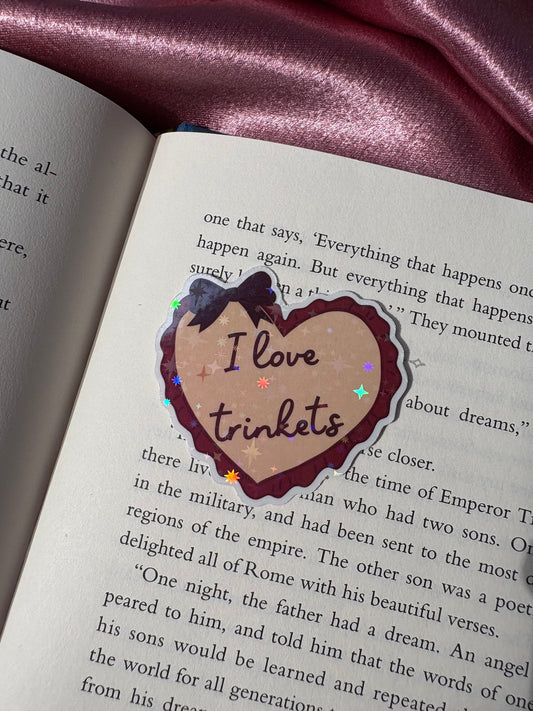 the al-
that it
ere,
at
one that says, ‘Everything that happens onc
happen again. But everything that happens
surely
n a thi
’ ” They mounted t
I love
trinkets
about dreams,”
se closer.
there liv
the time of Emperor T
in the military,
man who had two sons. On
regions of the empire.
and had been sent to the most d
delighted all of Rome with his beautiful verses.
The other son was a poet
“One night, the father had a dream. An angel
peared to him, and told him that the words of one
his sons would be learned and repeated
the world for all generations t
from his drea